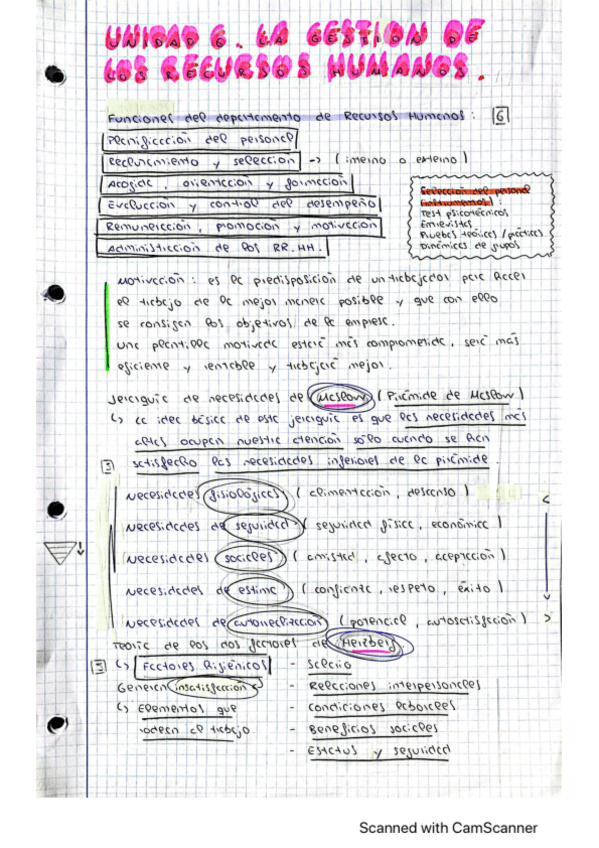 UNIDAD 6. LA GESTIÓN DE
LOS RECURSOS HUMANOS.
Funciones del departamento de Recursos Humanos: 6
Planificación del personal
Reclutamiento y selección -> (interno o externo)
Acogida, orientación y formación
Evaluación y control del desempeño
Remuneración, promoción y motivación
Administración de los RR.HH.
Selección del personal
(instrumentos):
Test psicotécnicos
Entrevistas
Pruebas teóricas/prácticas
Dinámicas de grupos
Motivación: es la predisposición de un trabajador para hacer
el trabajo de la mejor manera posible y que con ello
se consigan los objetivos de la empresa.
Una plantilla motivada estará más comprometida, será más
eficiente y rentable y trabajará mejor.
Jerarquía de necesidades de Maslow (Pirámide de Maslow)
↳ La idea básica de esta jerarquía es que las necesidades más
altas ocupan nuestra atención sólo cuando se han
5 satisfecho las necesidades inferiores de la pirámide.
Necesidades fisiológicas (alimentación, descanso)
Necesidades de seguridad (seguridad física, económica)
Necesidades sociales (amistad, afecto, aceptación)
Necesidades de estima (confianza, respeto, éxito)
Necesidades de autorrealización (potencial, autosatisfacción)
Teoría de los dos factores de Herzberg
↳ Factores higiénicos - Salario
Generan insatisfacción - Relaciones interpersonales
↳ Elementos que - Condiciones laborales
rodean al trabajo. - Beneficios sociales
- Estatus y seguridad
Scanned with CamScanner